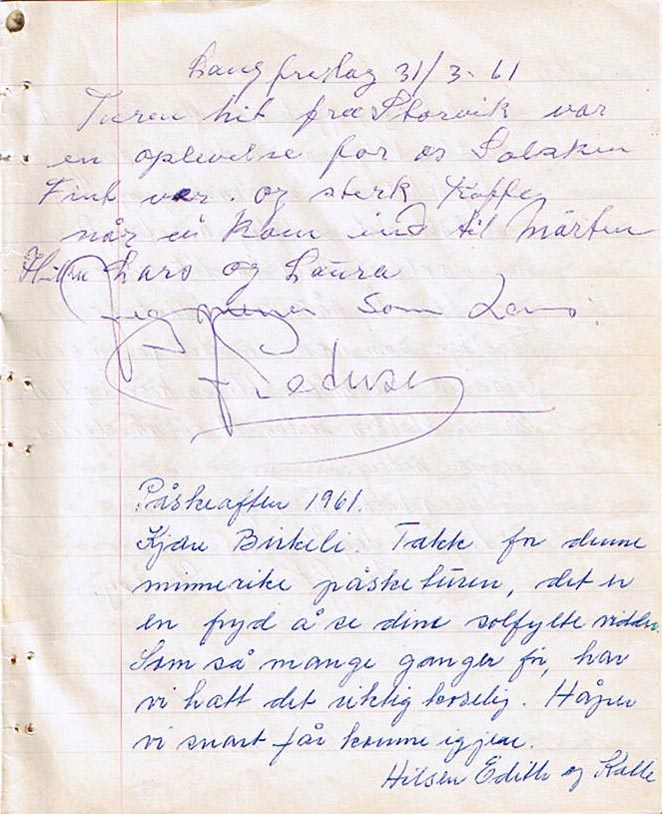 Langfredag 31/3-61
Turen hit fra Storvik var
en oplevelse for os Solskin
Fint vær. og sterk Kaffe
når vi kom ind til Mårten
Hilsen Lars og Laura
som Lars.
Pedersen
Påskeaften 1961.
Kjære Birkeli. Takk for denne
minnerike påsketuren, det er
en fryd å se dine solfylte vidder.
Som så mange ganger før, har
vi hatt det riktig koselig. Håper
vi snart får komme igjen.
Hilsen Edith og Kalle